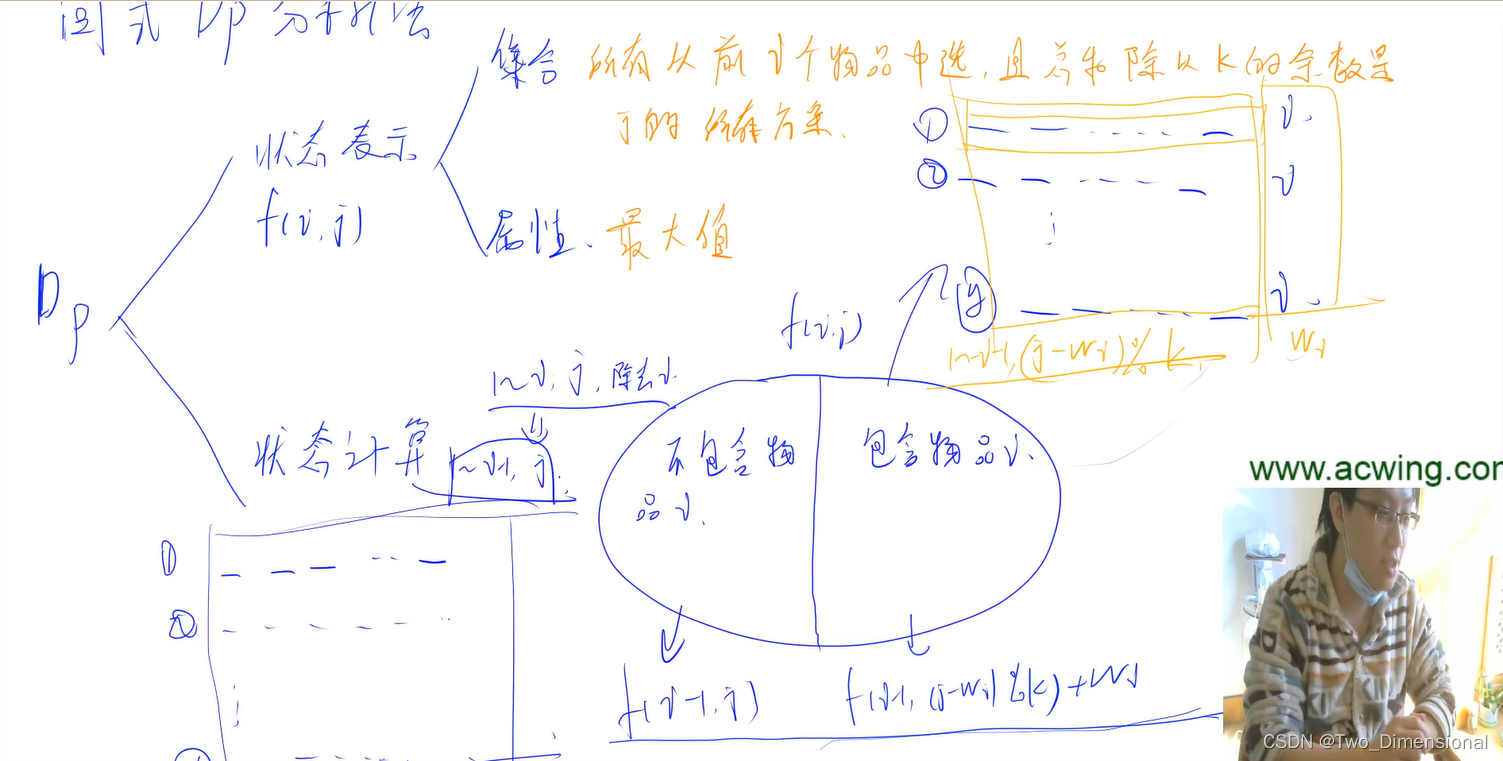 闫式 Dp 分析法
集合 所有从前 i 个物品中选,且总和除以 k 的余数是
j 的 所有方案.
① i.
② i
状态表示
f(i, j)
属性. 最大值
Dp
f(i, j)
y i.
1~i-1, (j-wi)%k, wi
1~i, j, 除去i.
状态计算 1~i-1, j.
不包含物
品 i.
包含物品 i.
www.acwing.com
①
②
f(i-1, j)
f(i-1, (j-wi)%k)+wi
CSDN @Two_Dimensional